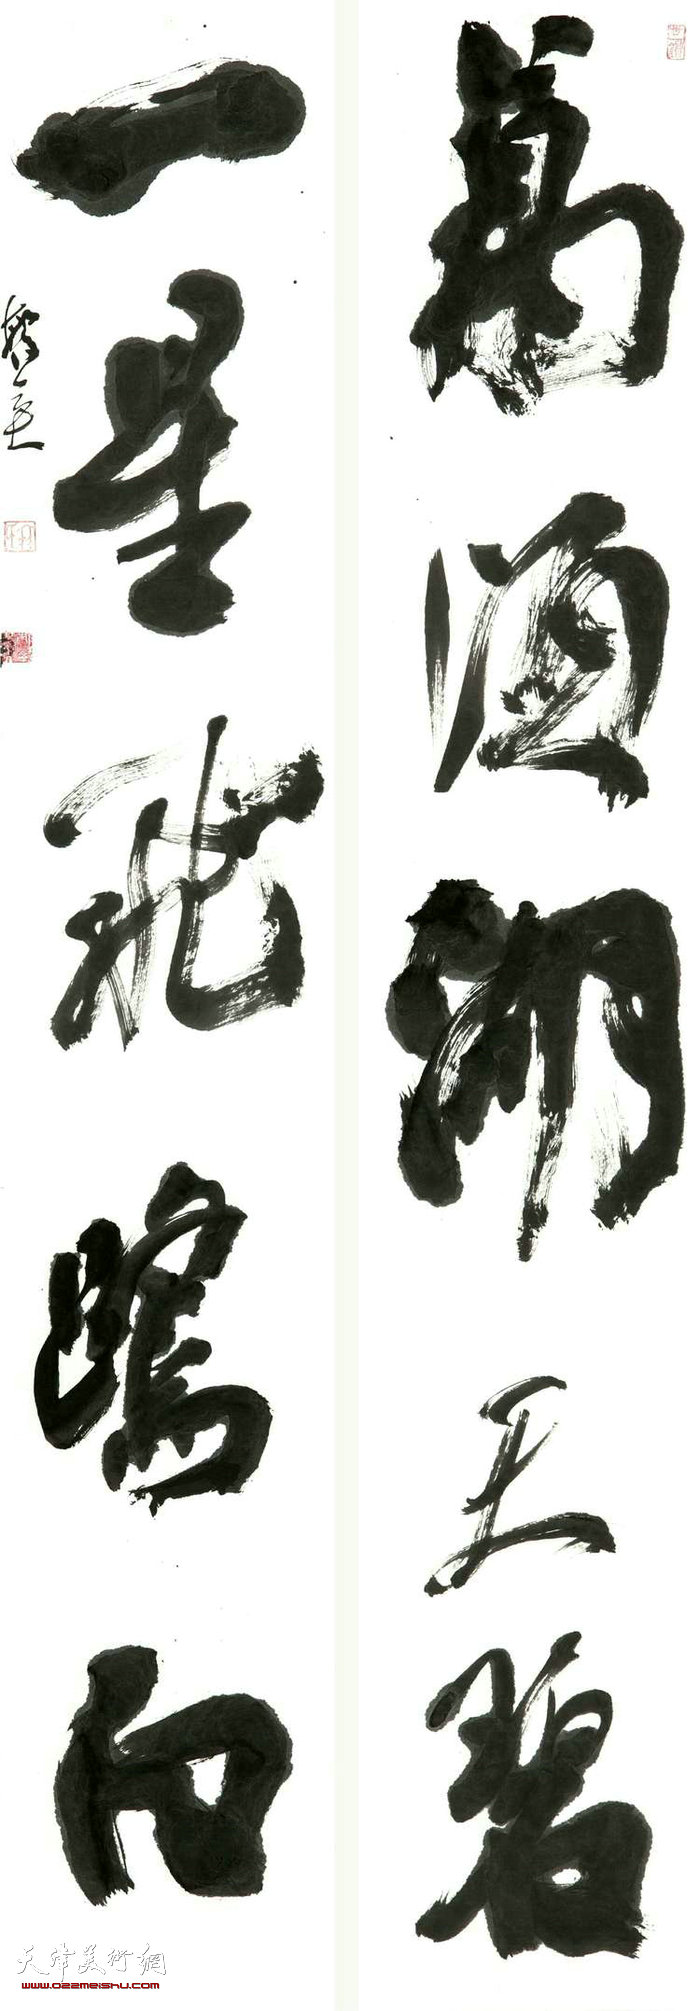 萬頃湖天碧
一星飛鷺白
天津美術網
www.022meishu.com